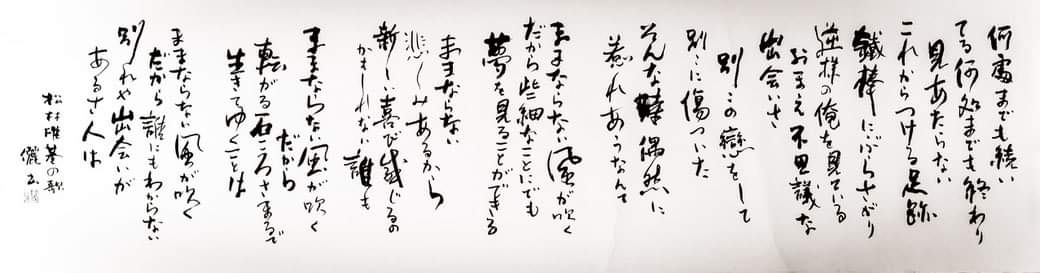 何處までも続い
てる何処までも終わり
見あたらない
これからつける足跡
鐵棒にぶらさがり
逆様の俺を見ている
おまえ不思議な
出会いさ
別々の戀をして
別々に傷ついた
そんな時偶然に
惹れあうなんて
ままならない風が吹く
だから些細なことにでも
夢を見ることができる
ままならない
悲しみあるから
新しい喜び感じるの
かもしれない誰も
ままならない風が吹く
だから
転がる石ころさまるで
生きてゆくことは
ままならない風が吹く
だから誰にもわからない
別れや出会いが
あるさ人は
松村雄基の歌